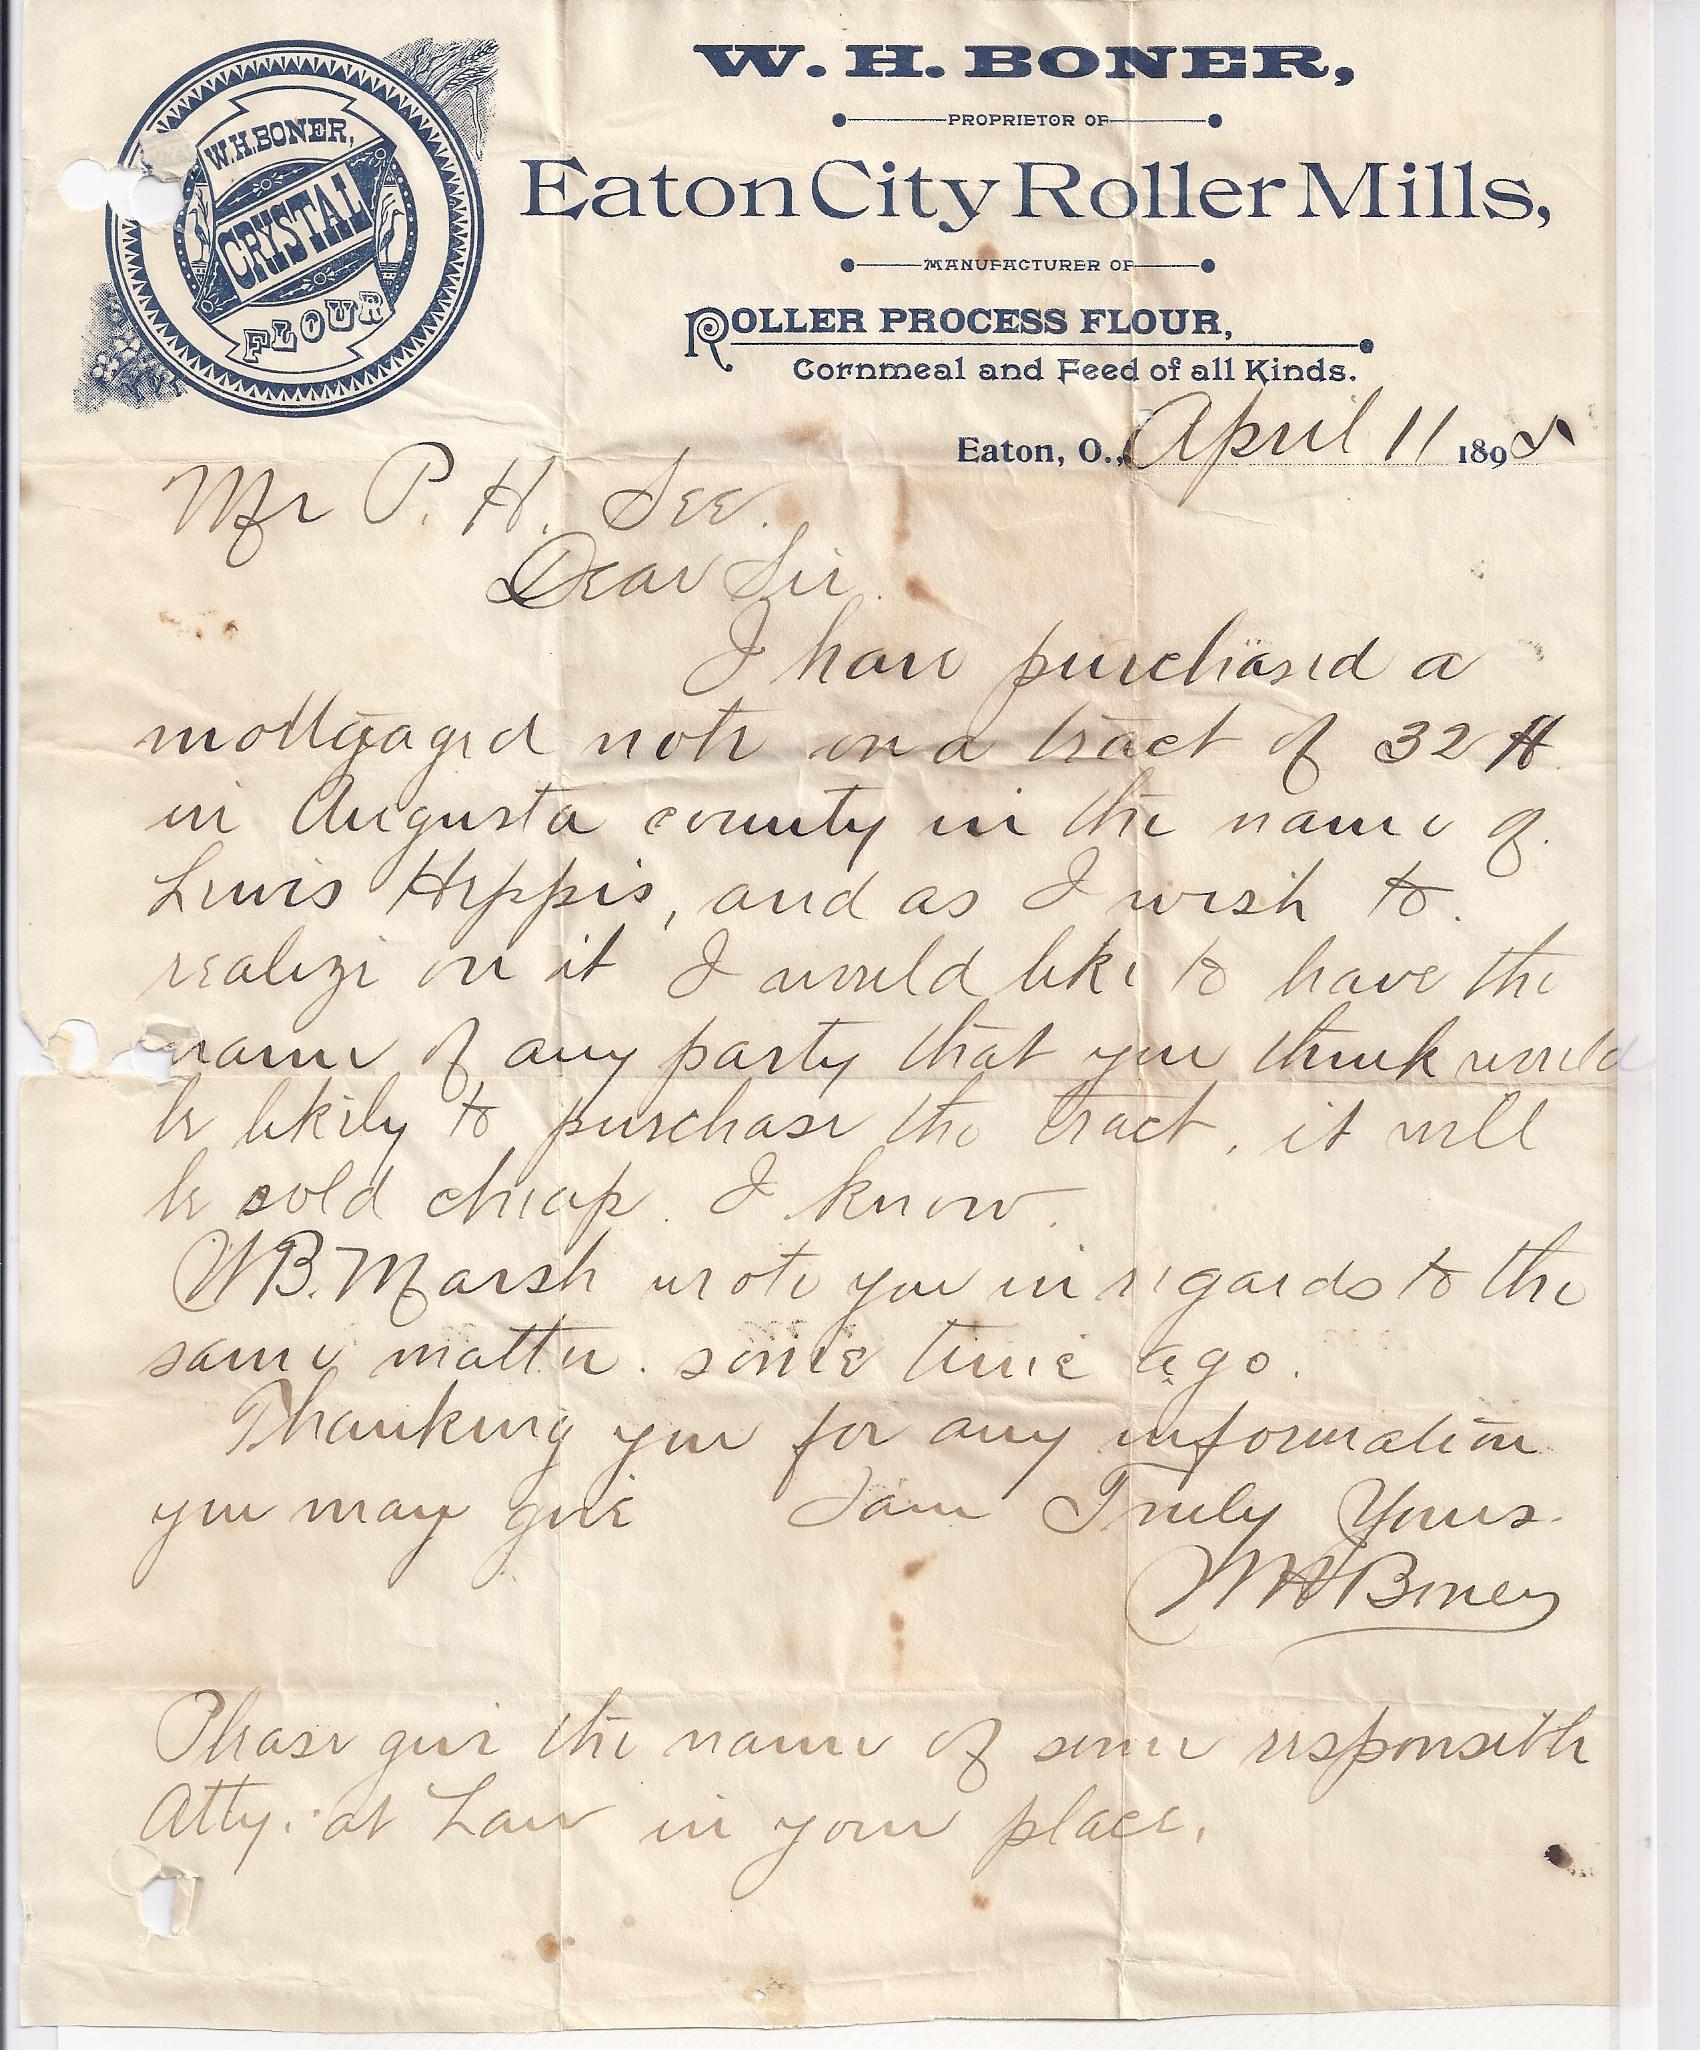 W. H. BONER,
PROPRIETOR OF
Eaton City Roller Mills,
MANUFACTURER OF
ROLLER PROCESS FLOUR,
Cornmeal and Feed of all Kinds.
W.H. BONER,
CRYSTAL
FLOUR
Eaton, O., April 11 189
Mr P. H. See.
Dear Sir.
I have purchased a
mottgaged note on a tract of 32 A
in Augusta county in the name of.
Lewis Heppis, and as I wish to.
realize on it I would like to have the
name of any party that you think would
be likely to purchase the tract, it will
be sold cheap. I know.
W B. Marsh wrote you in regards to the
same matter. some time ago.
Thanking you for any information
you may give I am Truly Yours.
W H Boner
Please give the name of some responsible
Atty. at Law in your place.